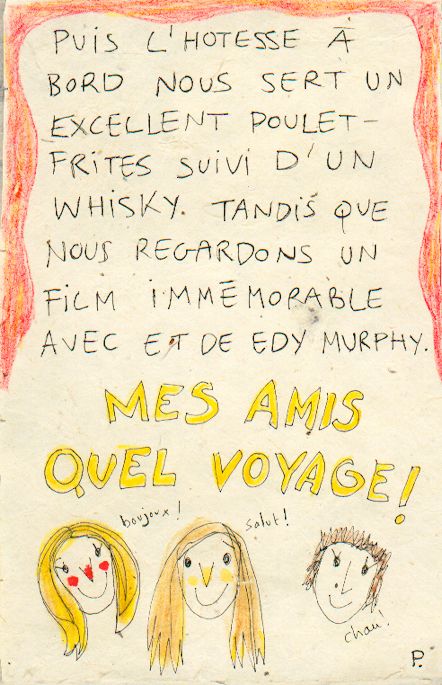 PUIS L'HOTESSE À
BORD NOUS SERT UN
EXCELLENT POULET-
FRITES SUIVI D'UN
WHISKY. TANDIS QUE
NOUS REGARDONS UN
FILM IMMÉMORABLE
AVEC ET DE EDY MURPHY.
MES AMIS
QUEL VOYAGE!
boujoux!
salut!
chau!
P.